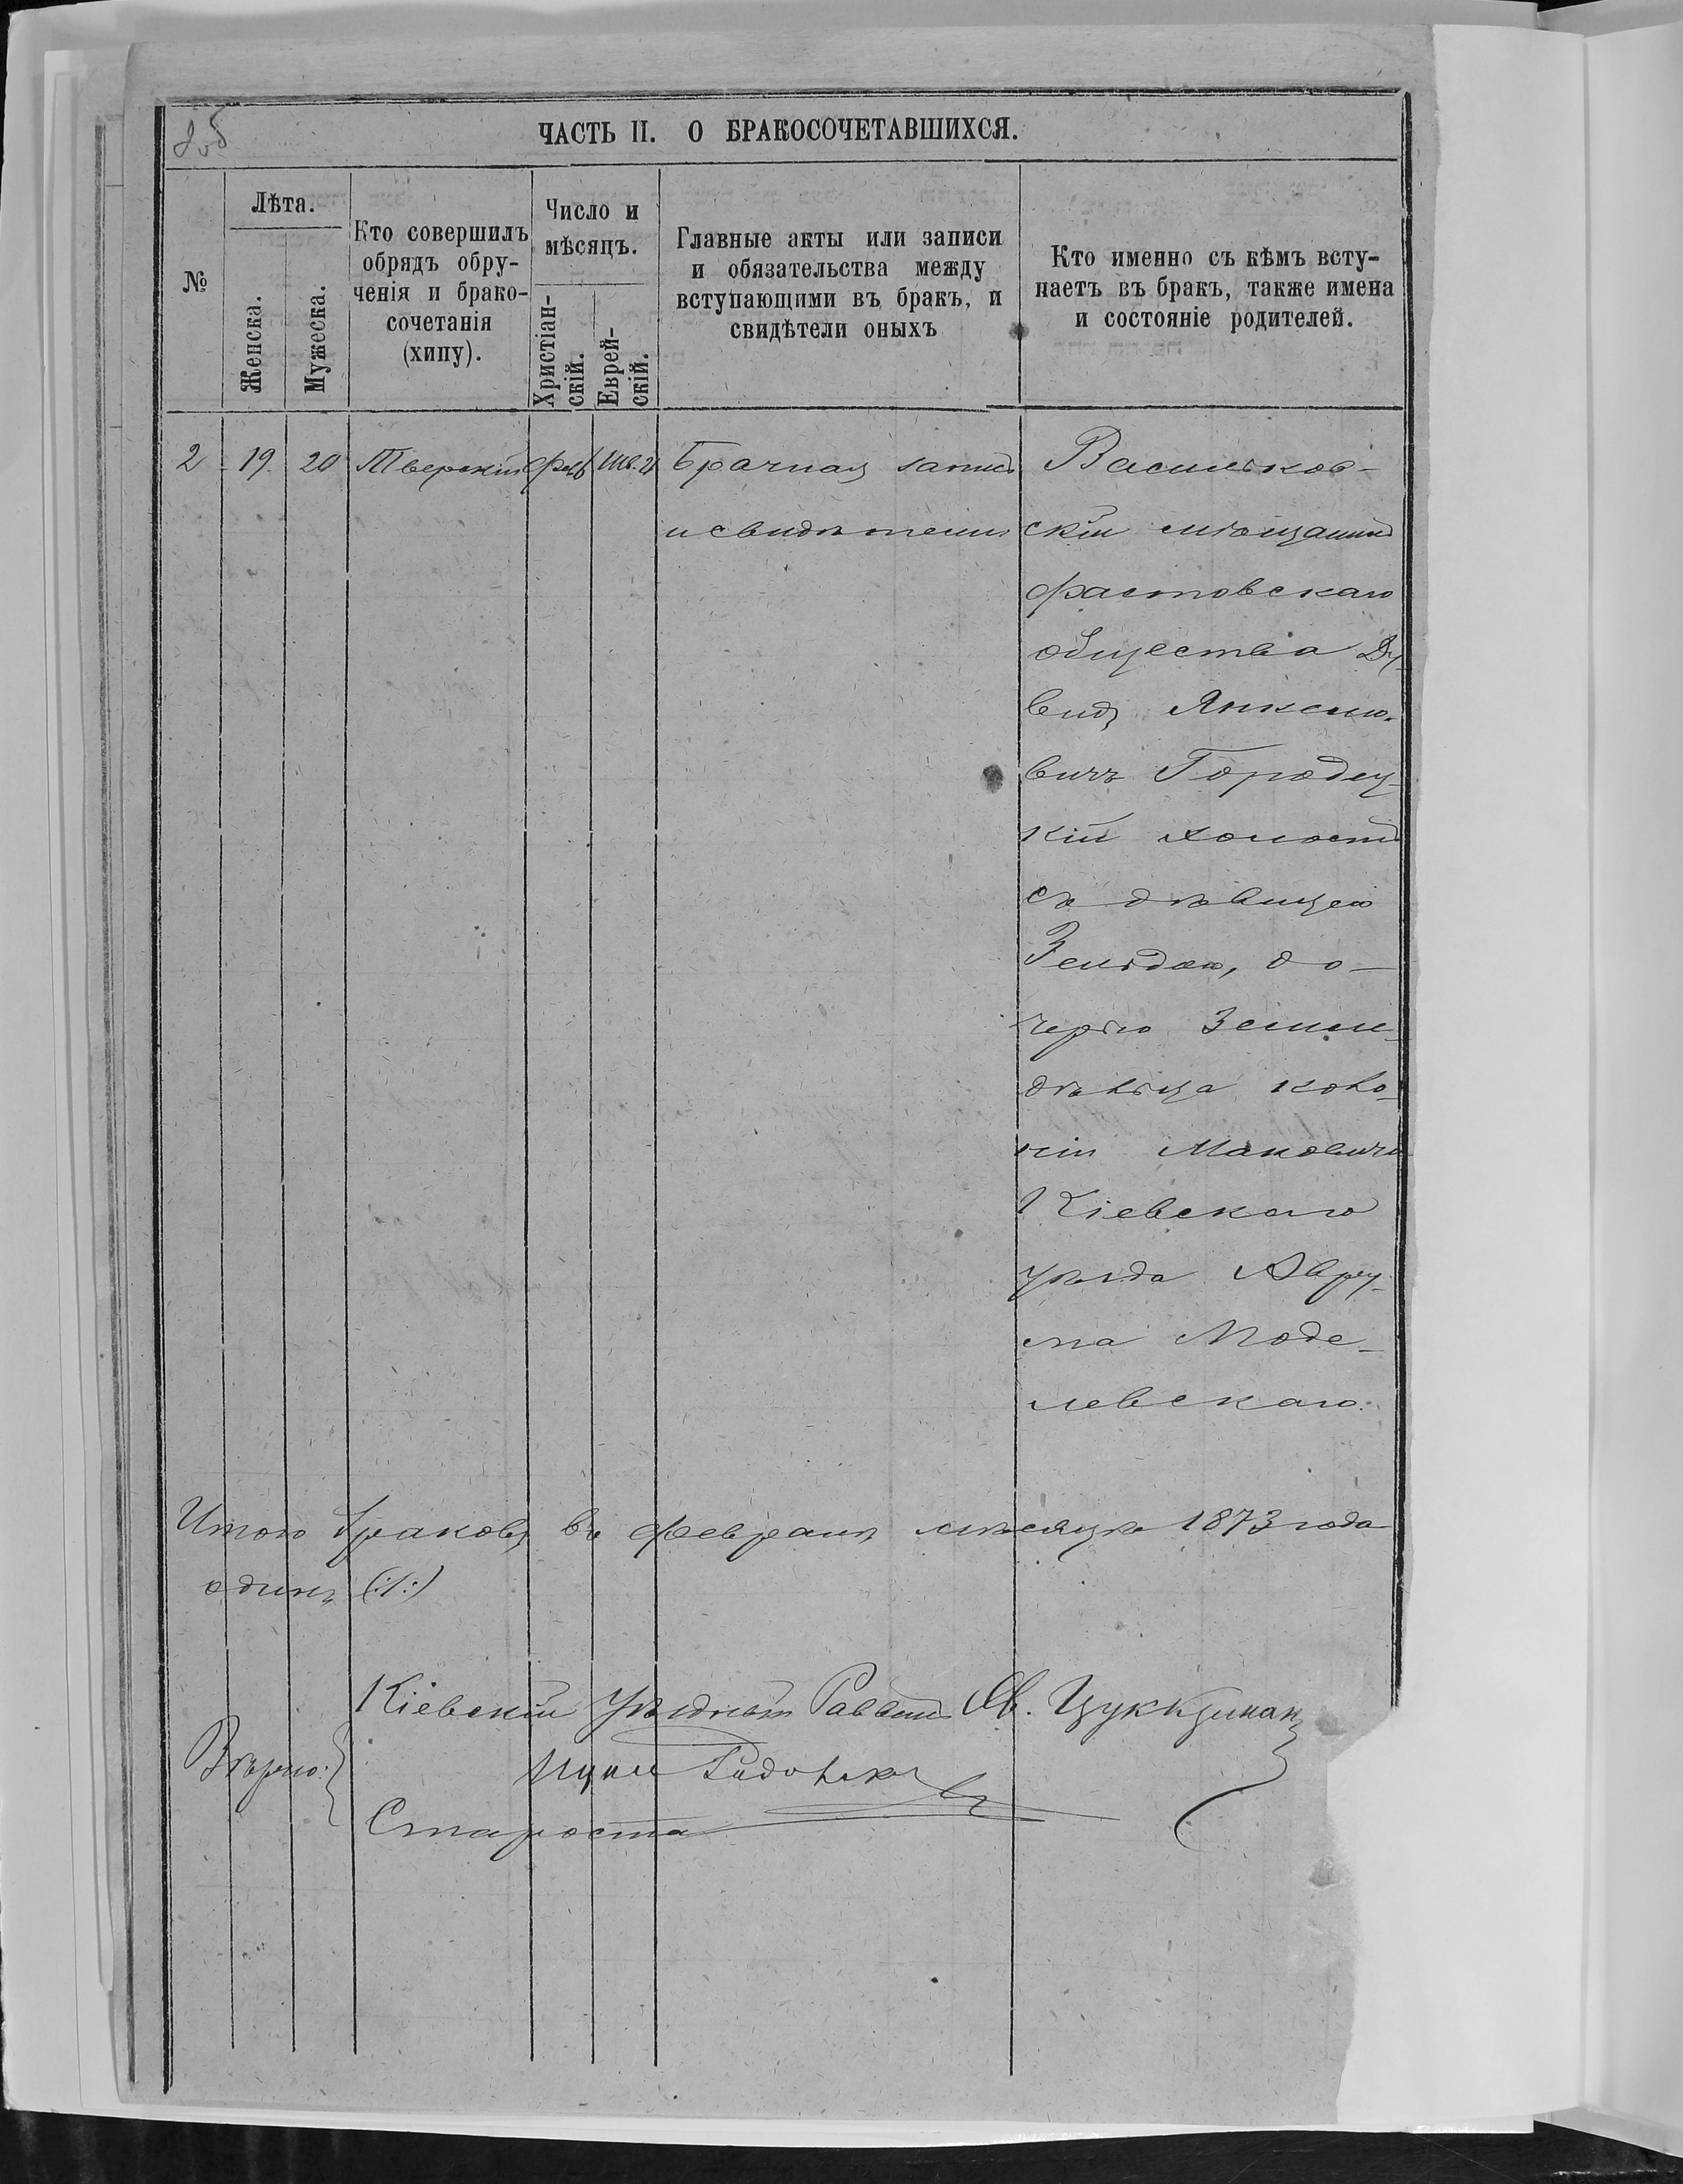 ЧАСТЬ II. О БРАКОСОЧЕТАВШИХСЯ.
№
Лѣта.
Женска.
Мужеска.
Кто совершилъ
обрядъ обру-
ченія и брако-
сочетанія
(хипу).
Число и
мѣсяцъ.
Христіан-
скій.
Еврей-
скій.
Главные акты или записи
и обязательства между
вступающими въ бракъ, и
свидѣтели оныхъ
Кто именно съ кѣмъ всту-
паетъ въ бракъ, также имена
и состояніе родителей.
2 19. 20 Тверскій Брачная запись
и свидѣтели
Васильков-
скій мѣщанинъ
фастовскаго
общества Ду-
видъ Янкелю-
вичъ Городец-
кій холостъ
съ дѣвицею
Зельдою, до-
черью Земле-
дѣльца коло-
ніи Мановичи
Кіевскаго
уѣзда Авру-
ма Моде-
левскаго.
Итого браковъ въ февралѣ мѣсяцѣ 1873 года
одинъ (:1:)
Кіевскій Уѣздный Раввинъ Ав. Цуккерман
Вѣрно:
Староста